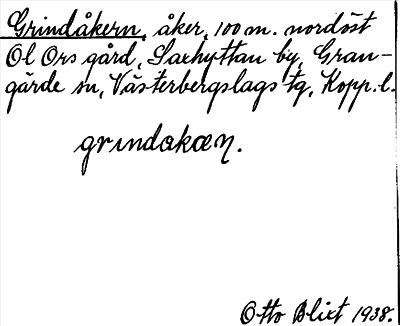 Grindåkern, åker, 100 m. nordöst
Ol Ors gård, Saxhyttan by, Gran-
gärde sn, Västerbergslags tg, Kopp. l.
grındakæɳ.
Otto Blixt 1938.